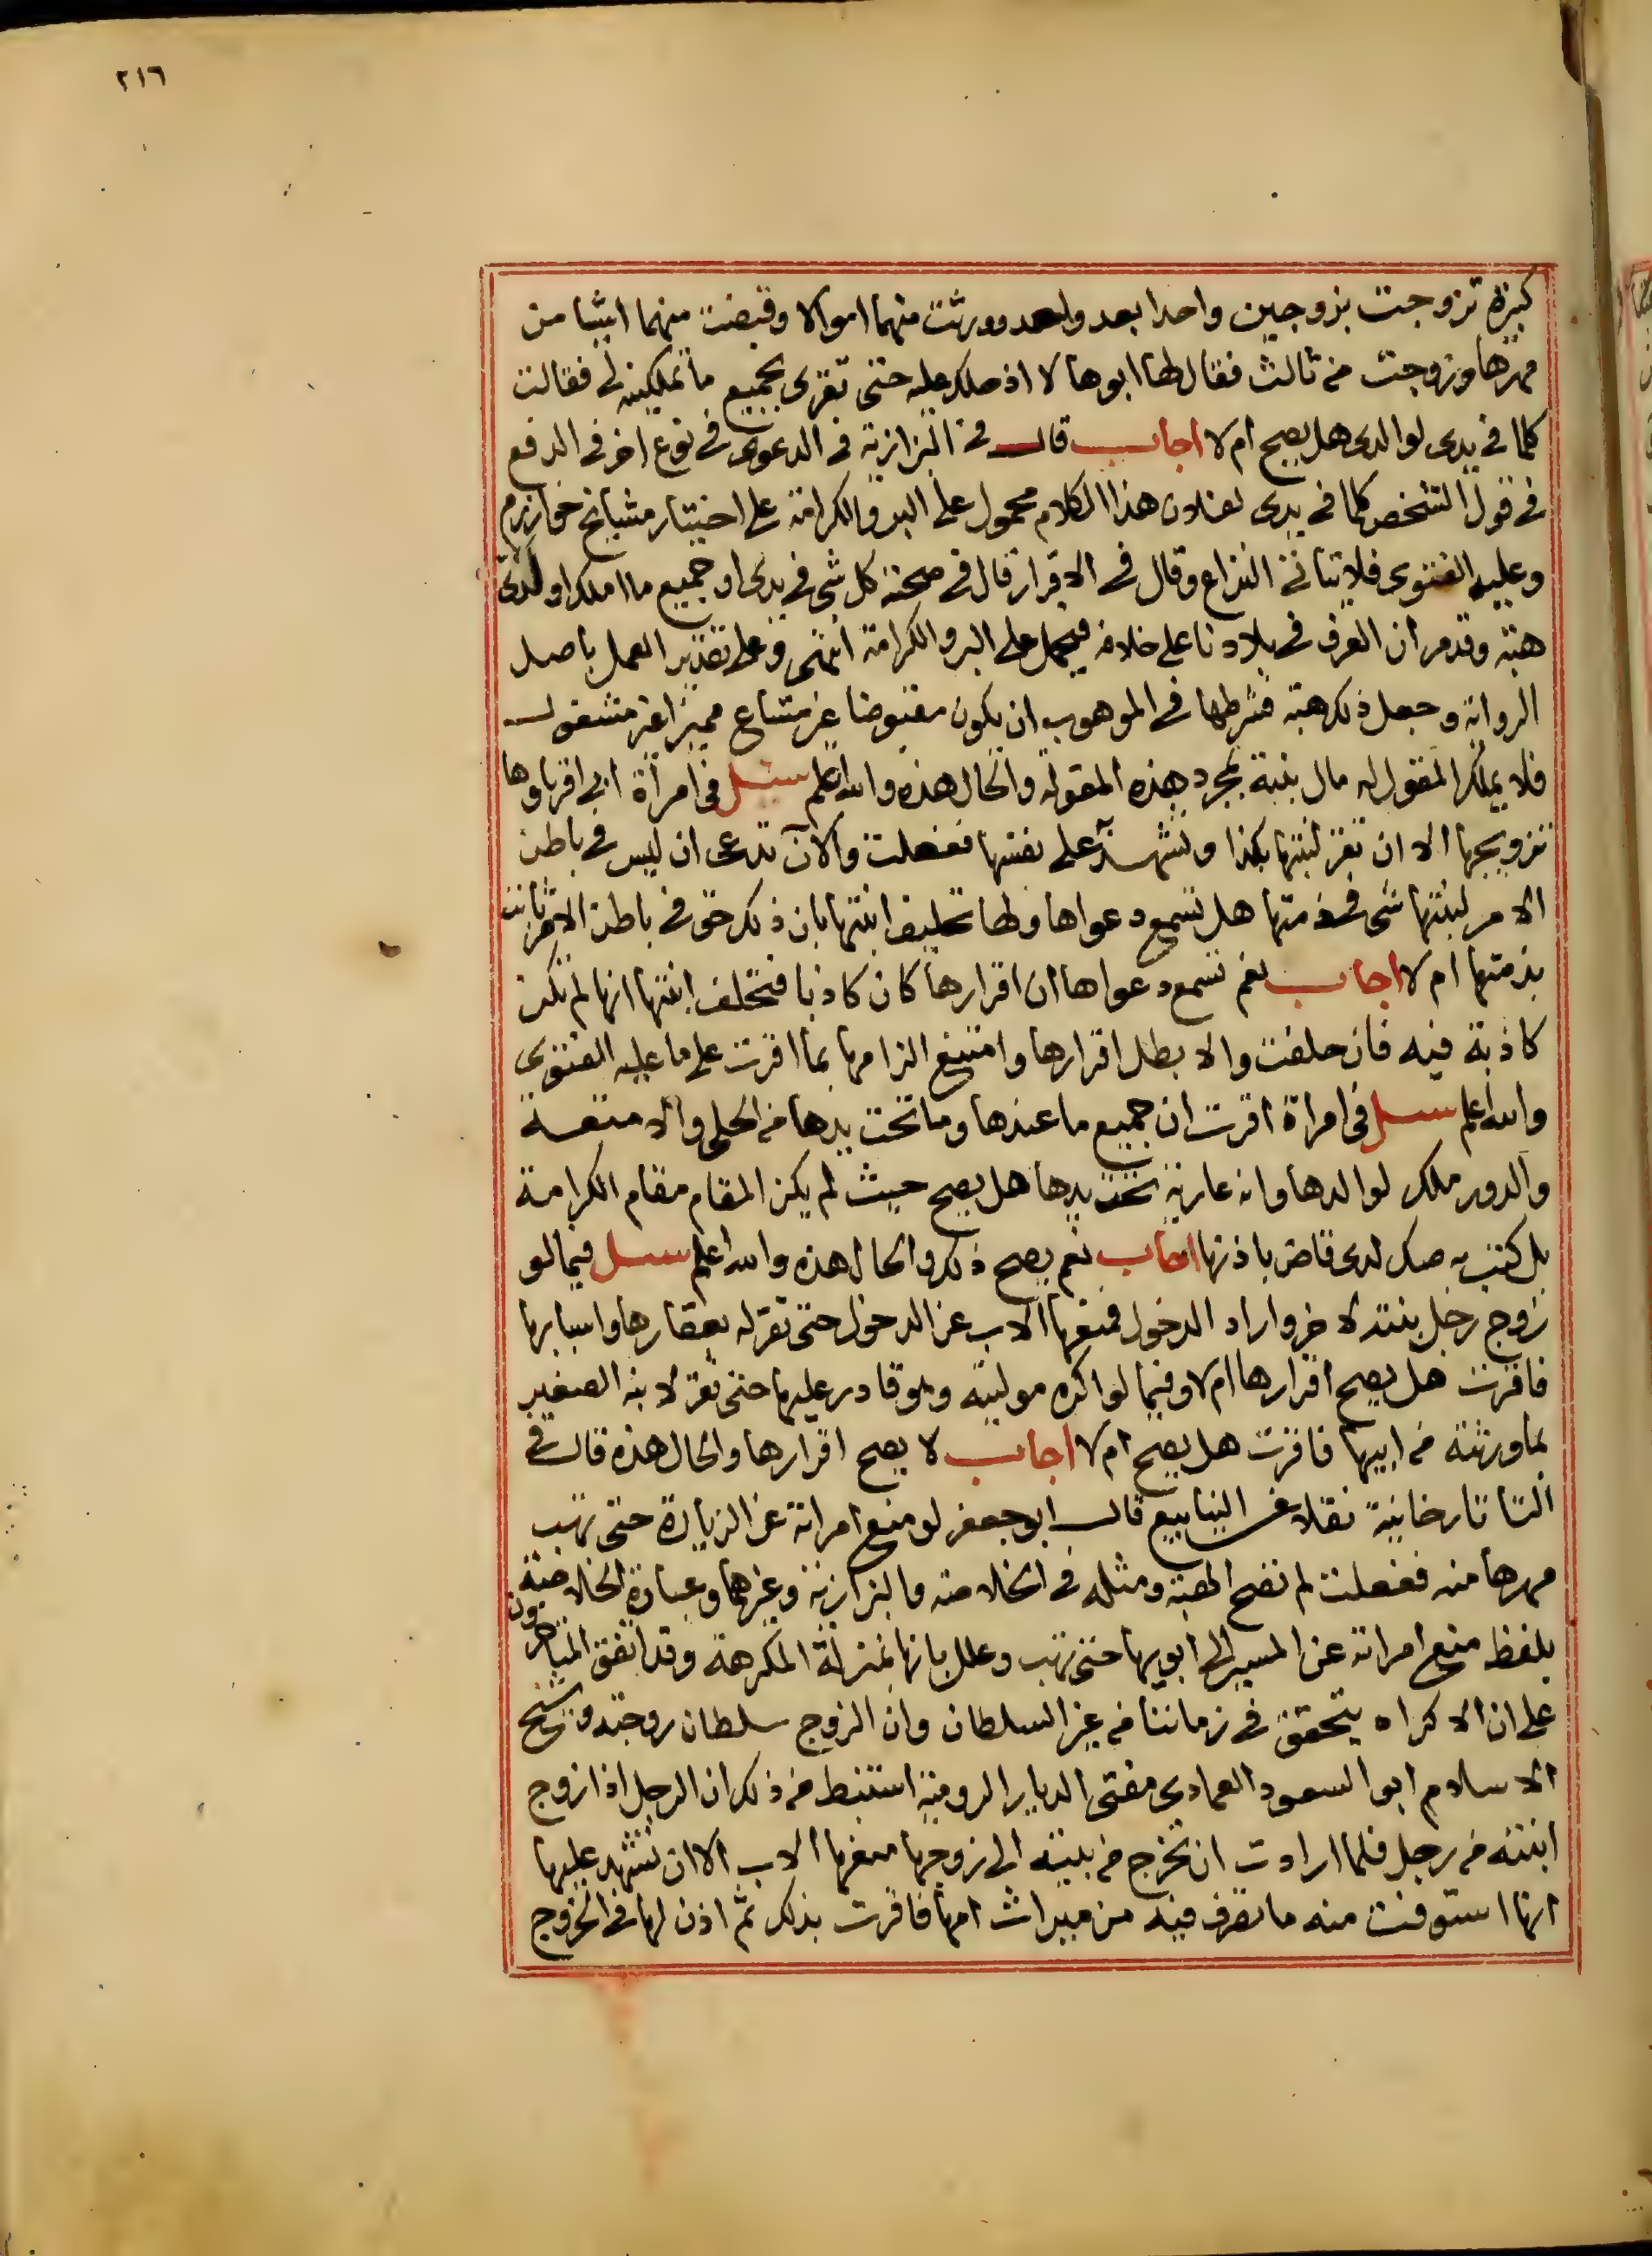 ٢١٦
كبيرة تزوجت بزوجين واحدا بعد واحد وورثت منهما اموالا وقبضت منهما اشيا من
مهرها وتزوجت من ثالث فقال لها ابوها لا اذ ملك عليه حتى تقرى بجميع ما تملكينه لى فقالت
كلما فى يدى لوالدى هل يصح ام لا اجاب قال فى البزازية فى الدعوى فى نوع اخر فى الدفع
فى قول الشخص كلما فى يدى لفلان هذا الكلام محمول على البر والكرامة على اختيار مشايخ خوارزم
وعليه الفتوى فلا يتاتى النزاع وقال فى الاقرار قال فى صحته كل شى فى يدى او جميع ما املك او لدى
هبة وقدمر ان العرف فى بلادنا على خلافه فيحمل على البر والكرامة انتهى وعلى تقدير العمل باصل
الرواية وجعل ذلك هبة فشرطها فى الموهوب ان يكون مقبوضا غير مشاع مميزا غير مشغول
فلا يملك المقول له مال بنته بمجرد هذه المقولة والحال هذه والله اعلم سئل فى امرأة ابى اقرباوها
تزويجها الا ان تقر لبنتها بكذا وتشهد على نفسها ففعلت والآن تدعى ان ليس فى باطن
الامر لبنتها شى فى ذمتها هل تسمع دعواها ولها تحليف ابنتها بان ذلك حق فى باطن الامر ثابت
بذمتها ام لا اجاب نعم تسمع دعواها ان اقرارها كان كاذبا فتحلف ابنتها انها لم تكن
كاذبة فيه فان حلفت والا بطل اقرارها وامتنع الزامها بما اقرت على ما عليه الفتوى
والله اعلم سئل فى امراة اقرت ان جميع ما عندها وما تحت يدها من الحلى والامتعة
والدور ملك لوالدها وانه عارية تحت يدها هل يصح حيث لم يكن المقام مقام الكرامة
بل كتب به صك لدى قاض باذنها اجاب نعم يصح ذلك والحال هذه والله اعلم سئل فيما لو
زوج رجل بنته لاخر واراد الدخول فمنعها الاب عن الدخول حتى تقر له بعقارها واسبابها
فاقرت هل يصح اقرارها ام لا وفيما لو اكره موليته وهو قادر عليها حتى تقر لابنه الصغير
بما ورثته من ابيها فاقرت هل يصح ام لا اجاب لا يصح اقرارها والحال هذه قال فى
التاتارخانية نقلا عن الينابيع قال ابو جعفر لو منع امراته عن الزيارة حتى تهب
مهرها منه ففعلت لم تصح الهبة ومثله فى الخلاصة والبزازية وغيرهما وعبارة الخلاصة
بلفظ منع امراته عن المسير الى ابويها حتى تهب وعلل بانها بمنزلة المكرهة وقد اتفق المتاخرون
على ان الاكراه يتحقق فى زماننا من غير السلطان وان الزوج سلطان زوجته وشيخ
الاسلام ابو السعود العمادى مفتى الديار الرومية استنبط من ذلك ان الرجل اذا زوج
ابنته من رجل فلما ارادت ان تخرج من بيته الى زوجها منعها الاب الا ان تشهد عليها
انها استوفت منه ما تصرف فيه من ميراث امها فاقرت بذلك ثم اذن لها فى الخروج